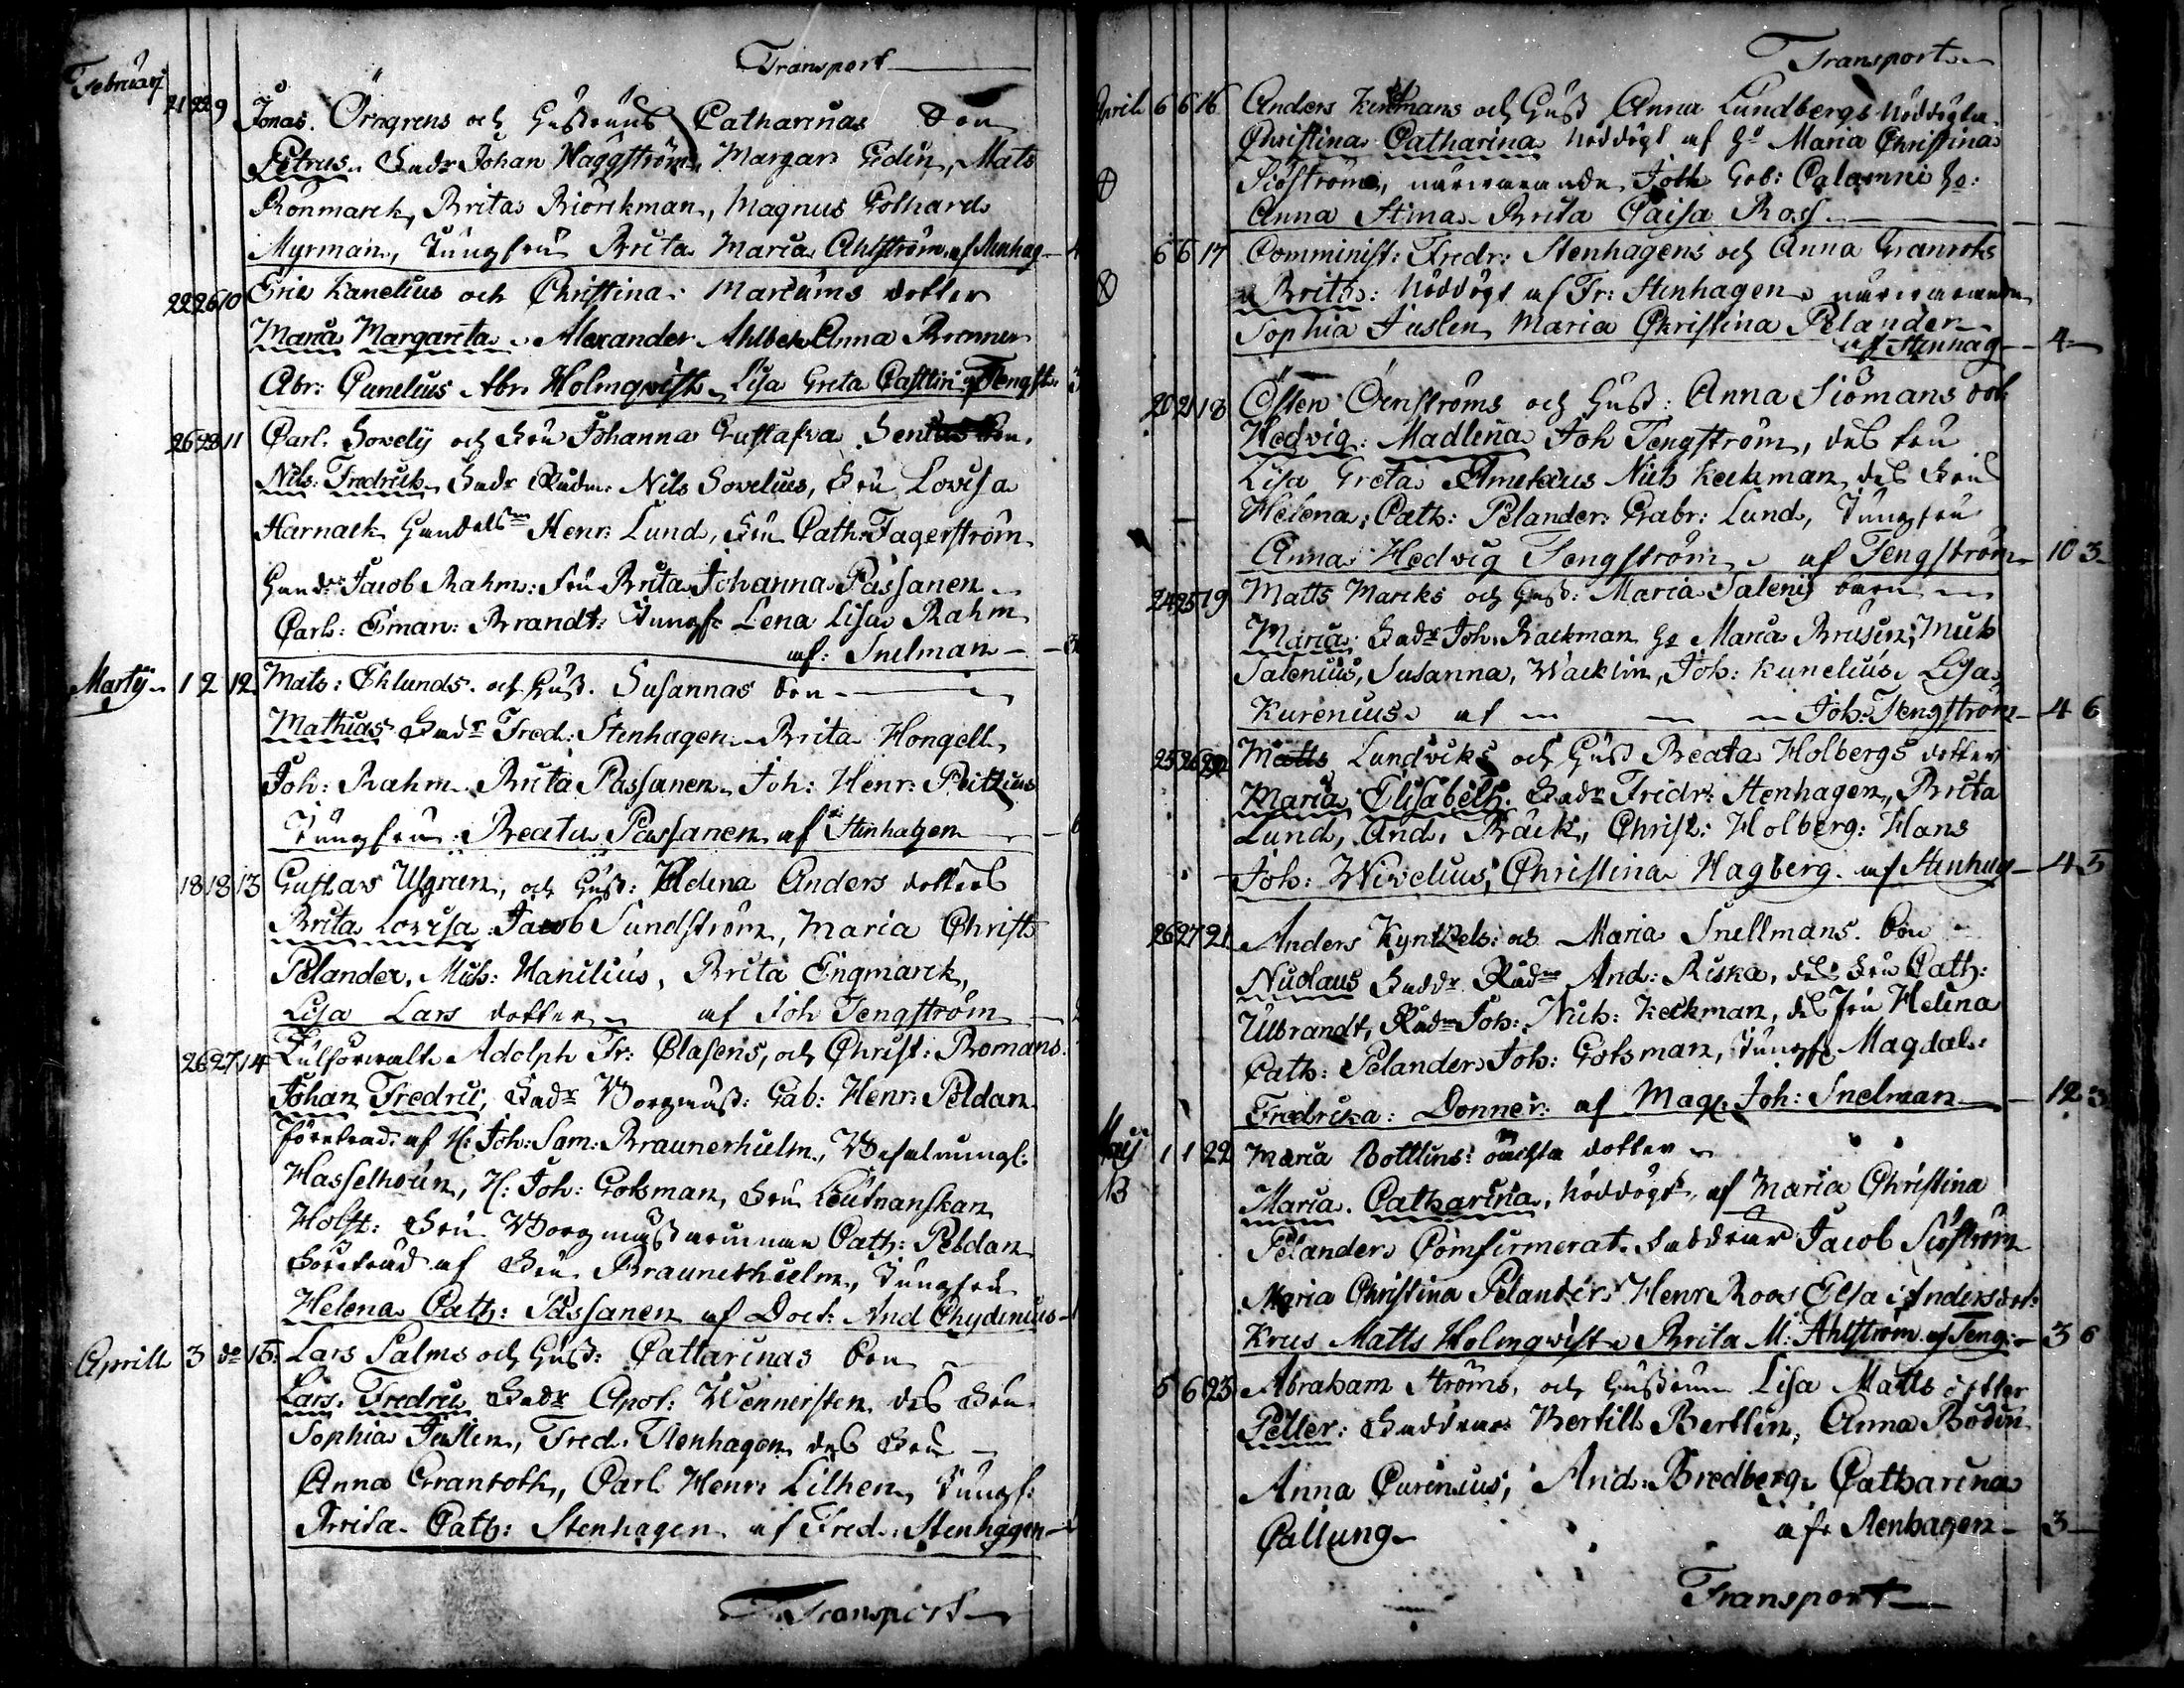 Transport
Februarij
21 22 9 Jonas Örngrens och Hustruns Catharinas Son
Petrus. Fadr Johan Häggström, Margar Hedin, Mats
Rönmarck, Brita Biörckman, Magnus Gothard
Myrman, Jungfru Brita Maria Ahlström af Stenhag
22 26 10 Eric Kanelius och Christina Marcums dotter
Maria Margareta. Alexander Ahlbek Anna Brunner
Abr: Cunelius Abr. Holmqvist, Lisa Greta Castlin af Tengst:
26 28 11 Carl Sovelij och Fru Johanna Gustafva
Nils Fredrick Fadr Rådm: Nils Sovelius, Fru Lovisa
Harnack Handelsm Henr: Lund, Fru Cath: Fagerström
Handl: Jacob Rahm: Fru Brita Johanna Passanen
Carl: Eman: Brandt: Jungfr Lena Lisa Rahm
af: Snelman
Martij 1 2 12 Mats: Eklunds och Hust. Susannas Son
Mathias Fadr Fred: Stenhagen Brita Hongell,
Joh: Rahm Brita Passanen Joh: Henr: Peitzius
Jungfru: Beata Passanen af Stenhagen
18 18 13 Gustav Ulgren, och Hust: Helena Anders dotters
Brita Lovisa Jacob Sundström, Maria Christ
Pelander, Mich: Kanilius, Brita Engmarck,
Lisa Lars dotter af Joh Tengström
26 27 14 Tulförvalt Adolph Fr: Clasens, och Christ: Romans
Johan Fredric, Fadr Borgmäst: Gab: Henr: Peldan
företrad: af H: Joh: Sam: Braunerhielm, Befalningsl:
Hasselhoun, H: Joh: Gotsman, Fru Leutnanskan
Holst: Fru Borgmästarinnan Cath: Peldan
företräd af Fru Braunerhielm, Jungfru
Helena Cath: Passanen af Doct: And Chydenius
Aprill 3 do 15: Lars Palms och Hust: Cattarinas Son
Lars Fredric Fadr Apot: Wennersten des Fru
Sophia Juslin, Fred. Stenhagen des Fru
Anna Granroth, Carl Henr: Lithen, Jungf:
Brita Cath: Stenhagen af Fred: Stenhagen
Transport
Transport
Aprill 6 6 16 Anders Kinmans och Hust Anna Lundbergs Nöddöpta
Christina Catharina Nöddöpt af Ho Maria Christina
Siöström, närvarande Joh Gab: Calamnii Ho:
Anna Stina Brita Caisa Ross
6 6 17 Comminist: Fredr: Stenhagens och Anna Granroths
Brita: Nöddöpt af Fr: Stenhagen närvarande
Sophia Juslen Maria Christina Pelander
af Stenhag 4
20 21 18 Östen Örnströms och Hust: Anna Siömans dot
Hedvig: Madlena Joh Tengström, des fru
Lisa Greta Nils Keckman des Fru
Helena: Cath: Pelander: Gabr: Lund, Jungfru
Anna Hedvig Tengström af Tengström 10 3
24 25 19 Matts Marcks och Hust: Maria Salenij barn
Maria: Fadr Joh. Backman Ho Maria Brusin; Mich
Salenius, Susanna, Wacklin, Joh: Kunelius, Lisa
Kurenius af Joh: Tengström 4 6
25 26 20 Matts Lundvicks och Hust Beata Holbergs dotter
Maria Elisabeth. Fadr Fridr: Stenhagen, Brita
Lund, And: Bäck, Christ: Holberg: Hans
Joh: Wivelius, Christina Hagberg af Stenhag 4 5
26 27 21 Anders Kyntzels: och Maria Snellmans Son
Nicolaus Faddr Rådm And: Riska, des Fru Cath:
Ulbrandt, Rådm Joh: Nich: Keckman, des Fru Helena
Cath: Pelander Joh: Gotsman, Jungfr Magdal:
Fredrika: Donner: af Mag: Joh: Snelman 12 3
Maij 1 1 22 Maria Bottlins: oächta dotter
Maria Catharina, Nöddöpt af Maria Christina
Pelander Comfirmerat. Faddrar Jacob Siöström
Maria Christina Pelander Henr Roos Elsa Andersdot:
Krus Matts Holmqvist Brita M: Ahlström af Teng: 3 6
5 6 23 Abraham Ströms, och Hustrun Lisa Matts dotter
Petter: Faddrar Bertill Bertlin, Anna Bodin
Anna Curenius, And: Bredberg Catharina
Callung af Stenhagen 3
Transport